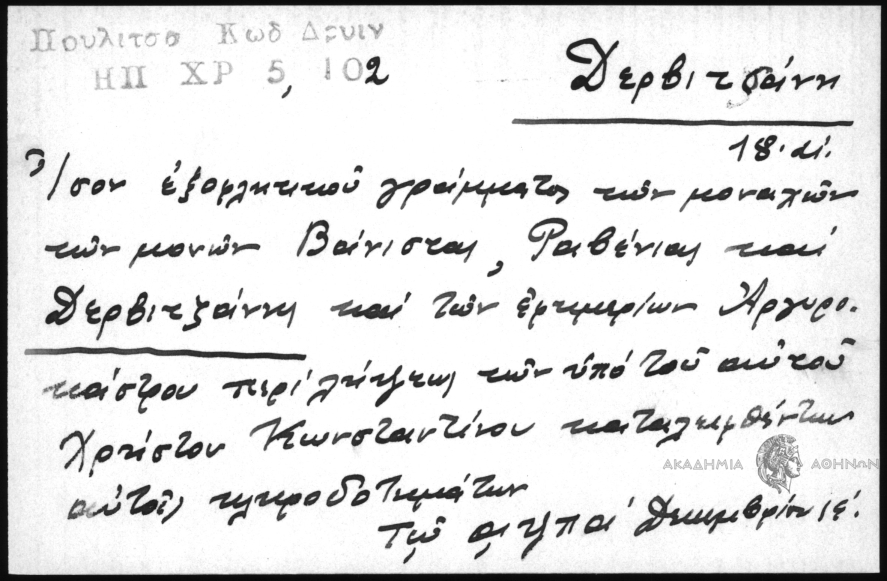 Πουλιτσα Κωδ Δρυιν
ΗΠ ΧΡ 5, 102
Δερβιτσάνη
18. αἰ.
Ἴσον ἐξοφλητικοῦ γράμματος τῶν μοναχῶν
τῶν μονῶν Βάνιστας, Ραβένιας καί
Δερβιτζάνης καί τῶν ἐφημερίων Ἀργυρο-
κάστρου περί λήψεως τῶν ὑπό τοῦ αὐτοῦ
Χρήστου Κωνσταντίνου καταλειφθέντων
αὐτοῖς κληροδοτημάτων
Τῷ αψπα΄ Δεκεμβρίου ιε΄.
ΑΚΑΔΗΜΙΑ ΑΘΗΝΩΝ